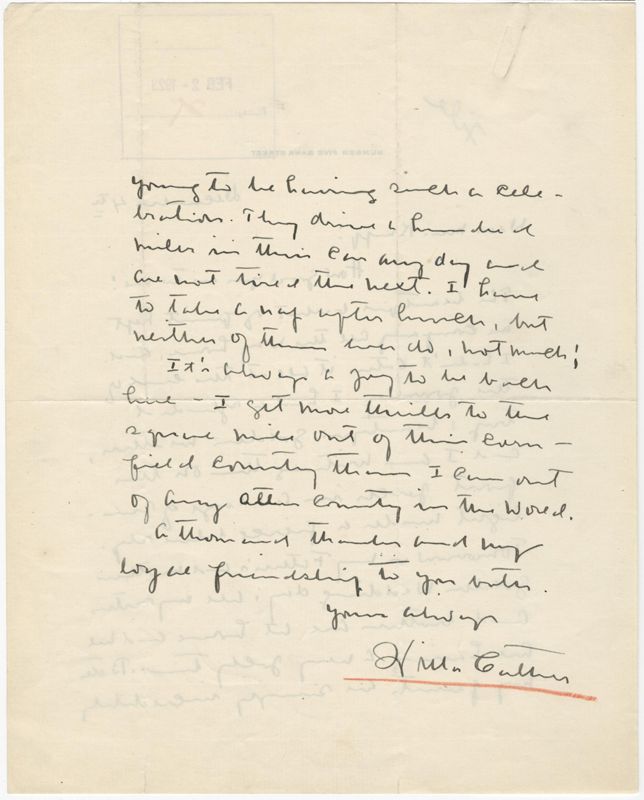 young to be having such a cele-
bration. They drive a hundred
miles in their car any day and
are not tired the next. I have
to take a nap after lunch, but
neither of them ever do, not much!
It's always a joy to be back
here - I get more thrills to the
square mile out of this corn-
field country than I can out
of any other country in the world.
A thousand thanks and my
loyal friendship to you both.
Yours always
Willa Cather
FEB 2 - 1923
NUMBER FIVE BANK STREET
December 4th